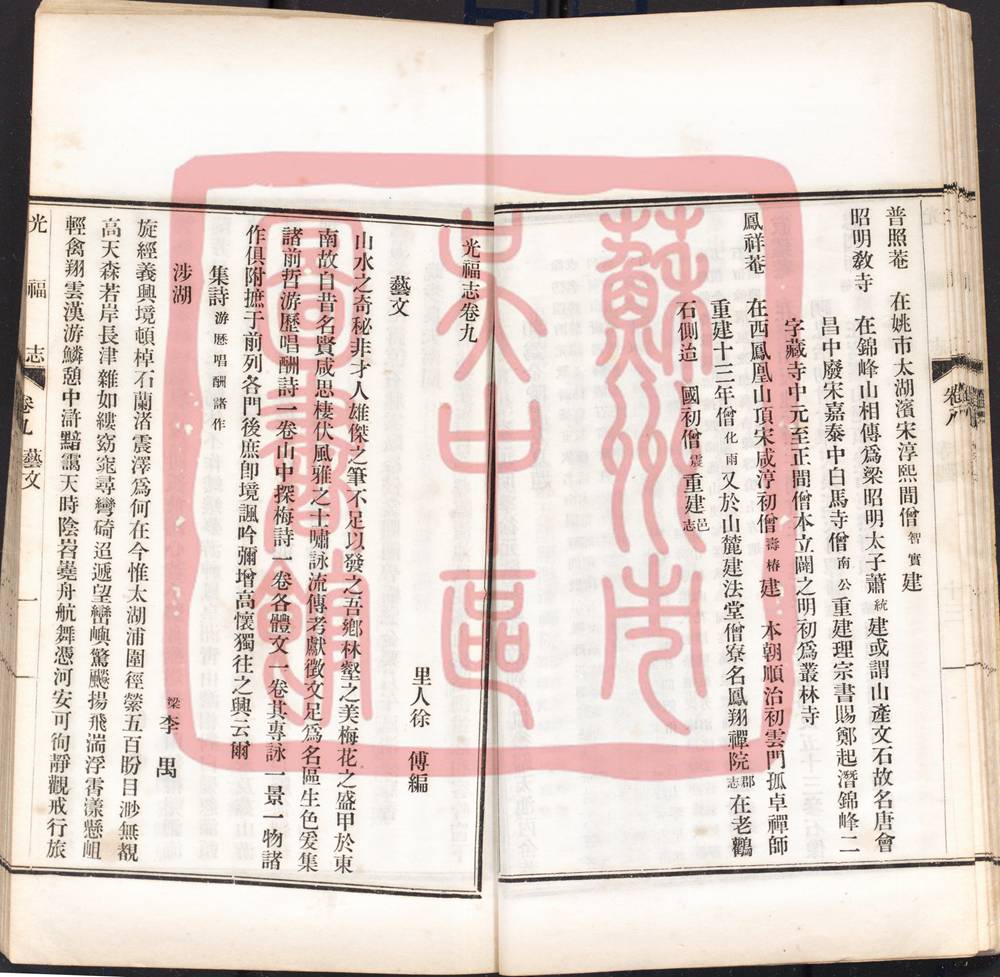 普照菴　在姚市太湖濱宋淳熙間僧智實建
昭明教寺　在錦峰山相傳爲梁昭明太子蕭統建或謂山產文石故名唐會
昌中廢宋嘉泰中白馬寺僧南公重建理宗書賜鄭起潛錦峰二
字藏寺中元至正間僧本立闢之明初爲叢林寺
鳳祥菴　在西鳳凰山頂宋咸淳初僧壽椿建　本朝順治初雲門孤卓禪師
重建十三年僧化雨又於山麓建法堂僧寮名鳳翔禪院郡志在老鸛
石側造　國初僧震重建邑志
卷八
光福志卷九
里人徐　傅編
藝文
山水之奇秘非才人雄傑之筆不足以發之吾鄉林壑之美梅花之盛甲於東
南故自昔名賢咸思棲伏風雅之士嘯詠流傳考獻徵文足爲名區生色爰集
諸前哲游歷唱酬詩一卷山中探梅詩一卷各體文一卷其專詠一景一物諸
作俱附摭于前列各門後庶卽境諷吟彌增高懷獨往之興云爾
集詩游歷唱酬諸作
涉湖
梁李　禺
旋經義興境頓棹石蘭渚震澤爲何在今惟太湖浦圍徑縈五百盼目渺無覩
高天森若岸長津雜如縷窈窕尋彎碕迢遞望巒嶼驚飈揚飛湍浮霄漾懸岨
輕禽翔雲漢游鱗憩中滸黯靄天時陰岧嶤舟航舞憑河安可徇靜觀戒行旅
光福志
卷九　藝文
一
蘇州市
吳中區
圖書館